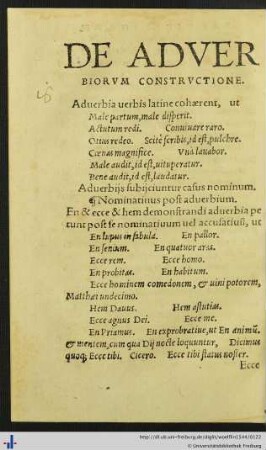 DE ADVER
BIORVM CONSTRVCTIONE.
Aduerbia uerbis latine cohærent, ut
Male partum, male disperit.
Actutum redi. Conuiuare raro.
Ocius redeo. Scitè scribis, id est, pulchre.
Cœnas magnifice. Viuà lauabor.
Male audit, id est, uituperatur.
Bene audit, id est, laudatur.
Aduerbijs subijciuntur casus nominum.
¶ Nominatiuus post aduerbium.
En & ecce & hem demonstrandi aduerbia pe
tunt post se nominatiuum uel accusatiuũ, ut
En lupus in fabula. En pallor.
En senium. En quatuor aras.
Ecce rem. Ecce homo.
En probitas. En habitum.
Ecce hominem comedonem, & uini potorem,
Matthæi undecimo.
Hem Dauus. Hem astutias.
Ecce agnus Dei. Ecce me.
En Priamus. En exprobratiue, ut En animũ
& mentem, cum qua Dij nocte loquuntur, Dicimus
quoq; Ecce tibi. Cicero. Ecce tibi status noster.
Ecce
http://dl.ub.uni-freiburg.de/diglit/
© Universitätsbibliothek Freiburg